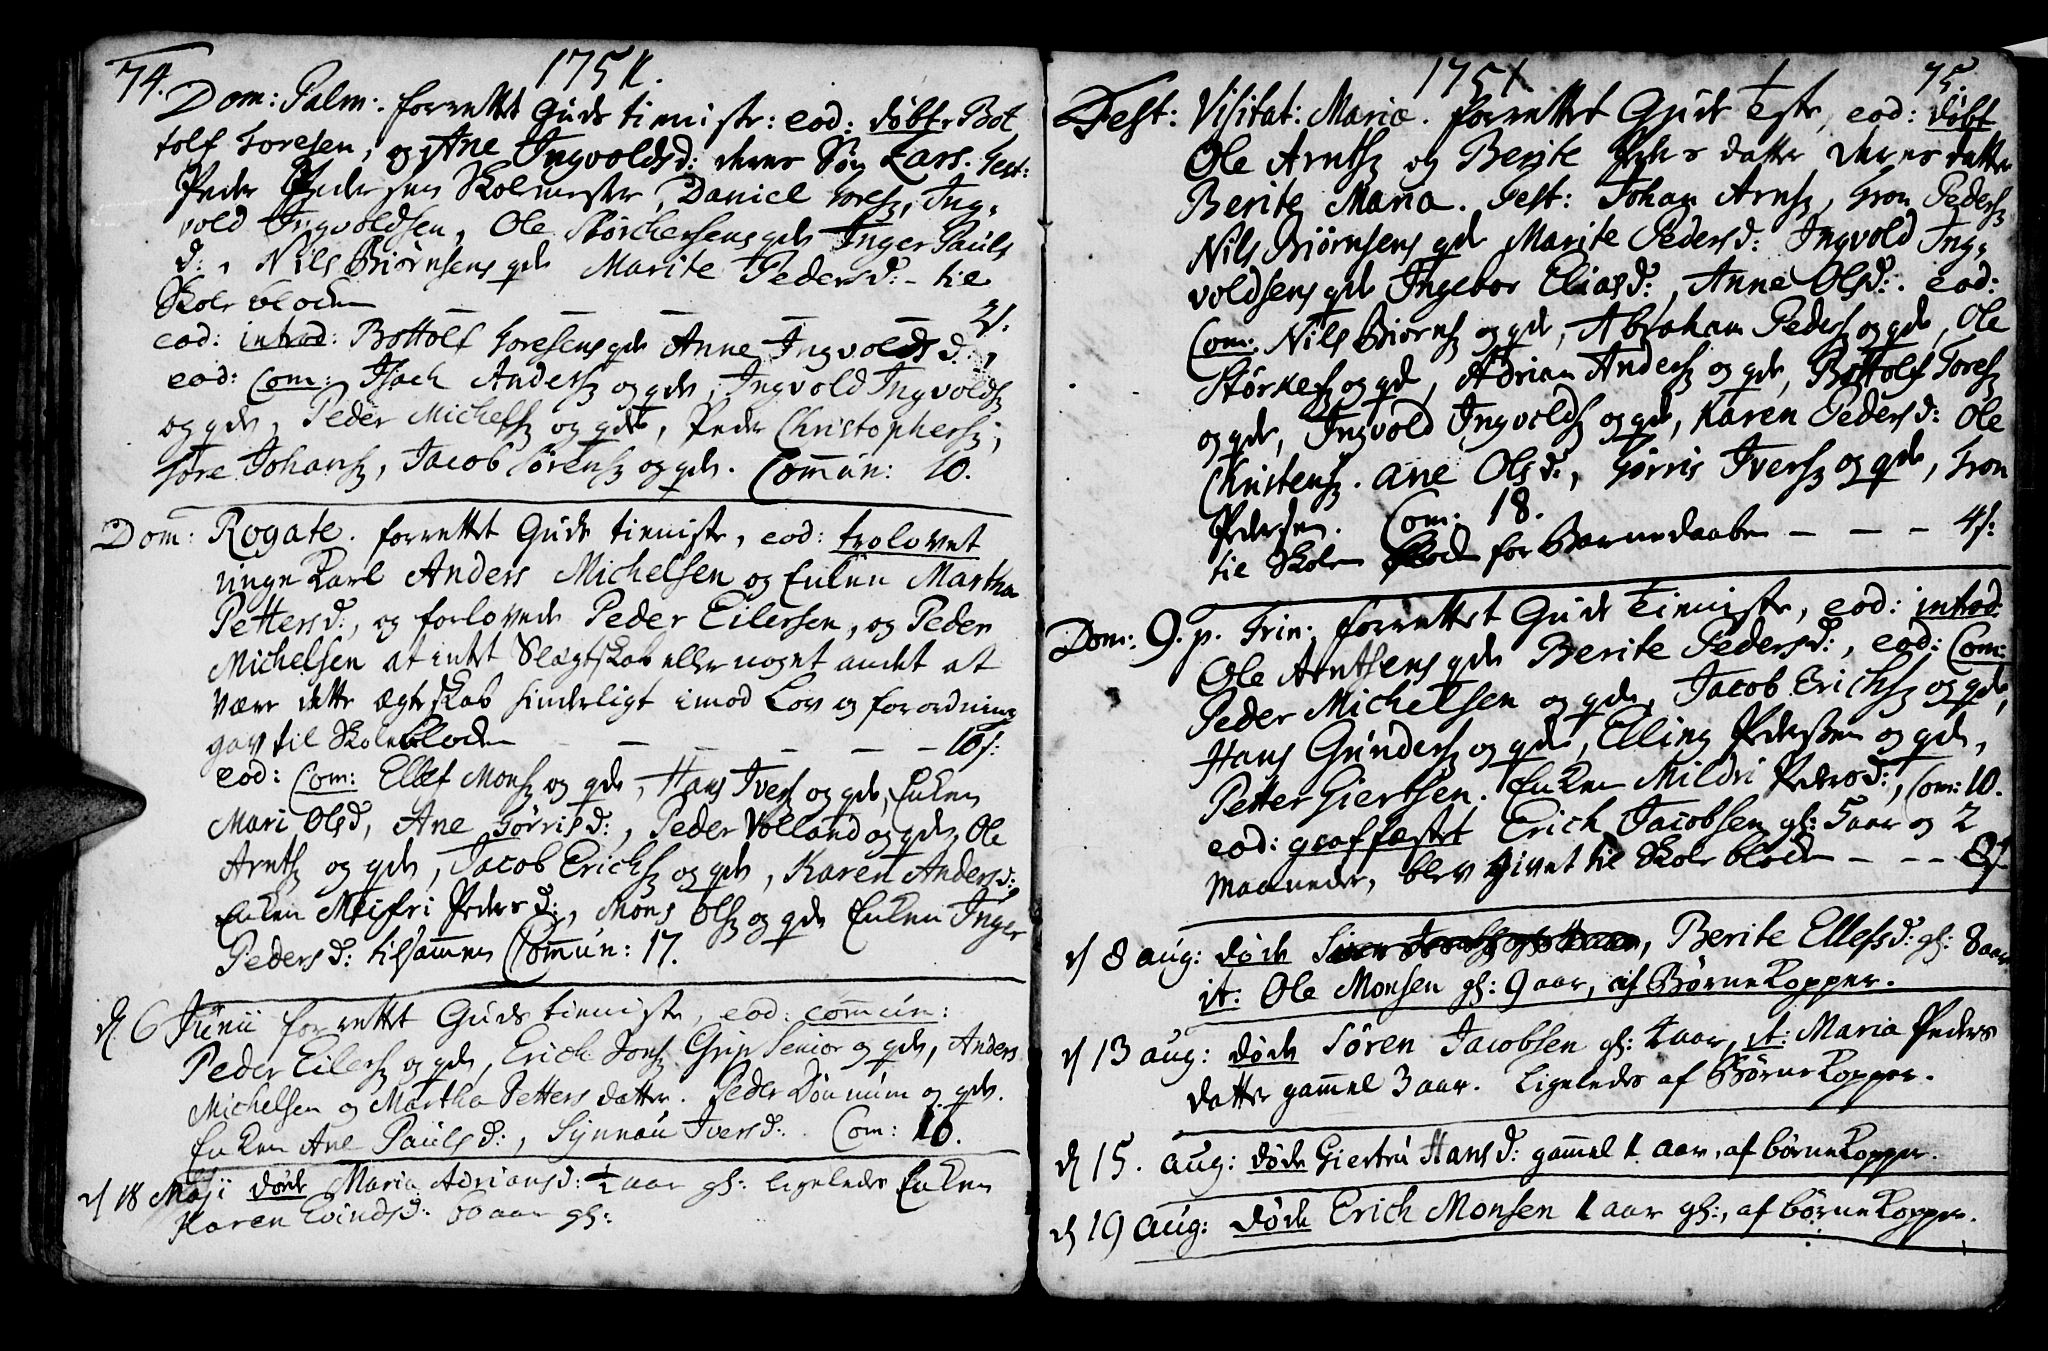 74. 1751.
Dom: Palm: forrettet Guds tieniste: eod: døbt Bot
tolf Toresen, og Ane Ingvoldsd: deres Søn Lars. Test:
Peder Pedersen Skolmester, Daniel Toresz, Ing-
vold Ingvoldsen, Ole Størchersens qde Inger Pauls
d:, Nils Biørnsens qde Marite Pedersd: - til
Skole bloken — — — — — 2s.
eod: introd: Bottolf Toresens qde Anne Ingvoldsd:,
eod: Com: Isach Andersz og qde, Ingvold Ingvoldsz
og qde, Peder Michelsz og qde, Peder Christophersz,
Tore Johansz, Jacob Sørensz og qde. Com̅un: 10.
Dom: Rogate. forrettet Guds tieniste, eod: trolovet
unge Karl Anders Michelsen og Enken Martha
Pettersd:, og forlovede Peder Eilersen, og Peder
Michelsen at intet Slægtskab eller noget andet at
være dette ægteskab hinderligt imod Lov og forordning
gav til Skolebloken — — — — — 16s:
eod: Com: Ellef Monsz og qde, Hans Iversz og qde, Enken
Mari Olsd, Ane Gørrisd:, Peder Volland og qde, Ole
Arntsz og qde, Jacob Erichsz og qde, Karen Andersd:
Enken Pedersd:, Mons Olsz og qde Enken Inger
Pedersd: tilsam̅en Com̅un: 17.
d 6 Junii forrettet Guds tieniste, eod: com̅un:
Peder Eilersz og qde, Erich Jonsz Grip Senior og qde, Anders
Michelsen og Martha Petters datter. Peder Dønnum og qde.
Enken Ane Paulsd:, Synnau Iversd: Com: 10.
d 18 Maji døde Maria Adriansd: ½ aar gl: ligeleds Enken
Karen Evindsd: 60 aar gl:
1751 75.
Fest: Visitat: Mariæ. forrettet Guds Tieste, eod: døbt
Ole Arntsz og Berite Peders datter deres datter
Berite Maria. Test: Johan Arnsz, Tron Pedersz
Nils Biørnsens qde Marite Pedersd: Ingvold Ing-
voldsens qde Ingebor Eliasd:, Anne Olsd:. eod:
Com: Nils Biørnsz og qde, Abraham Pedersz og qde, Ole
Størkesz og qd, Adrian Andersz og qde, Bottolf Toresz
og qde, Ingvold Ingvoldsz og qde, Karen Pedersd: Ole
Christensz. Ane Olsd:, Gørris Iversz og qde, Tron
Pedersen. Com: 18.
til Skole blok for Barnedaaben — — — 4s:
Dom: 9. p. Trin: forrettet Guds Tieniste, eod: introd:
Ole Arntsens qde Berite Pedersd:, eod: Com:
Peder Michelsen og qde, Jacob Erichsz og qde,
Hans Gundersz og qde, Elling Pedersen og qde,
Petter Giertsen. Enken Mildri Pedersd:, Com: 10.
eod: graffæstet Erich Jacobsen gl: 5 aar og 2
Maaneder, blev givet til Skole bloken — — — 8s
d 8 aug: døde Berite Ellefsd: gl: 8 aar
it: Ole Monsen gl: 9 aar, af Børne Kopper.
d 13 aug: døde Søren Jacobsen gl: aar, it: Maria Peders
datter gam̅el 3 aar. Ligeleds af Børne Kopper.
d 15. aug: døde Giertru Hansd: gam̅el 1 aar, af børne Kopper.
d 19 aug: døde Erich Monsen 1 aar gl:, af børne Kopper.